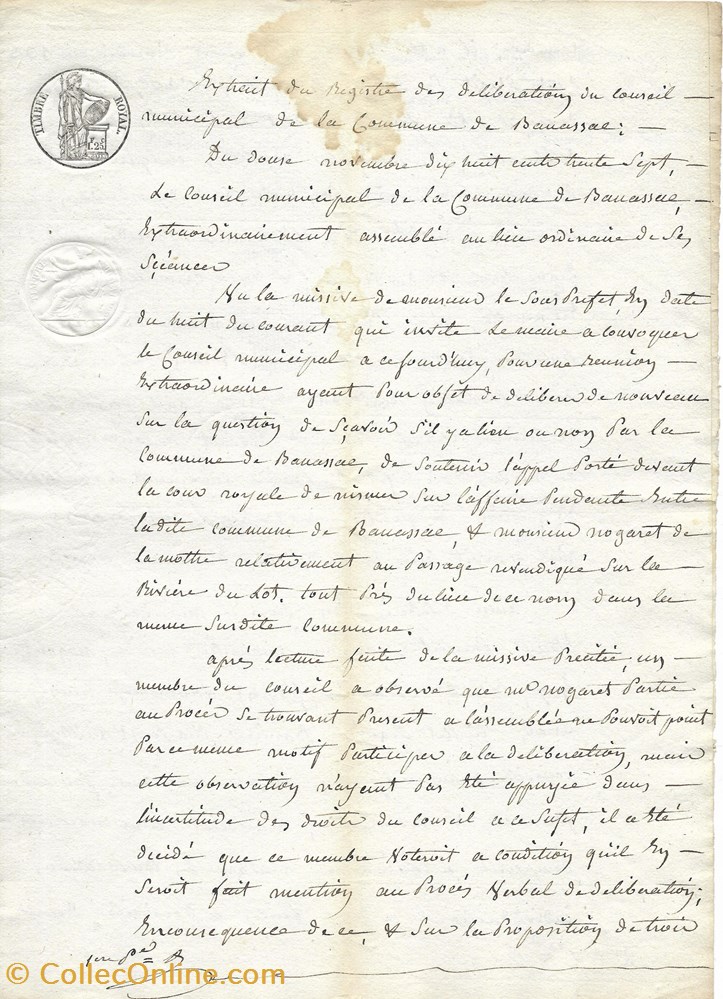 Extrait du Registre des deliberations du Conseil
municipal de la Commune de Banassac;
TIMBRE ROYAL.
1.25
Du douse novembre dix huit cents trente Sept,
Le Conseil municipal de la Commune de Banassac,
Extraordinairement assemblé au lieu ordinaire de Ses
Sçéances
Vu la missive de monsieur le Sous Prefet, En date
du huit du courant qui invite Le maire a convoquer
le Conseil municipal a ce jourd'huy, Pour une Reunion
Extraordinaire ayent Pour objet de deliberer de nouveau
Sur la question de Sçavoir S'il y a lieu ou non Par la
Commune de Banassac, de Soutenir l'appel Porté devant
la cour royale de nismes Sur l'affaire Pendante Entre
ladite commune de Banassac, & monsieur nogaret de
la mothe relativement au Passage revendiqué Sur la
Rivière du Lot. tout Près du lieu de ce nom dans la
meme Surdite Commune.
après lecture faite de la missive Precitée, un
membre du conseil a observé que mr. nogaret Partie
au Procès Se trouvant Present a l'assemblée ne Pouvoit point
Par ce meme motif Participer a la deliberation, mais
cette observation n'ayent Pas Eté appuyée dans
l'incertitude des droits du conseil a ce Sujet, il a Eté
décidé que ce membre Voteroit a condition qu'il En
Seroit fait mention au Procès Verbal de deliberation;
En consequence de ce, & Sur la Proposition de trois
© CollecOnline.com